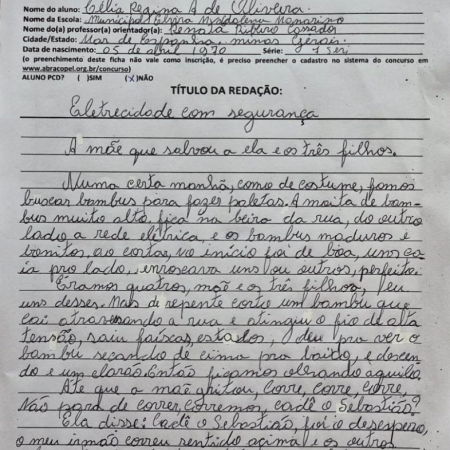 Nome do aluno: Célia Regina A de Oliveira.
Nome da Escola: Municipal Elvira Magdalena Mannarino
Nome do(a) professor(a) orientador(a): Renata Ribeiro
Cidade/Estado: Mar de Espanha, minas Gerais.
Data de nascimento: 05 de abril 1970 Série: 1
(o preenchimento desta ficha não vale como inscrição, é preciso preencher o cadastro no sistema do concurso em
www.abracopel.org.br/concurso)
ALUNO PCD? ( )SIM (X)NÃO
TÍTULO DA REDAÇÃO:
Eletrecidade com segurança
A mãe que salvou a ela e os três filhos.
Numa certa manhã, como de costume, fomos
buscar bambus para fazer paletas. A moita de bam-
bus muito alta, fica na beira da rua, do outro
lado a rede elétrica e os bambus maduros e
bonitos, ao cortar, no início foi de boa, um ca
ia pro lado, enroscava uns ou outros, perfeito.
Eramos quatros, mãe e os três filhos, eu
uns desses. Mas de repente corto um bambu que
cai atravesando a rua e atingiu o fio de alta
tensão, saiu faíscas, estalos, deu pra ver o
bambu secando de cima pra baixo, e descen-
do e um clarão. Então ficamos olhando aquilo
Ate que a mãe gritou, Corre, corre, corre,
Não para de correr, corremos, cadê o Sebastião?
Ela disse: Cadê o Sebastião, foi o desespero,
o meu irmão correu sentido acima e os outros